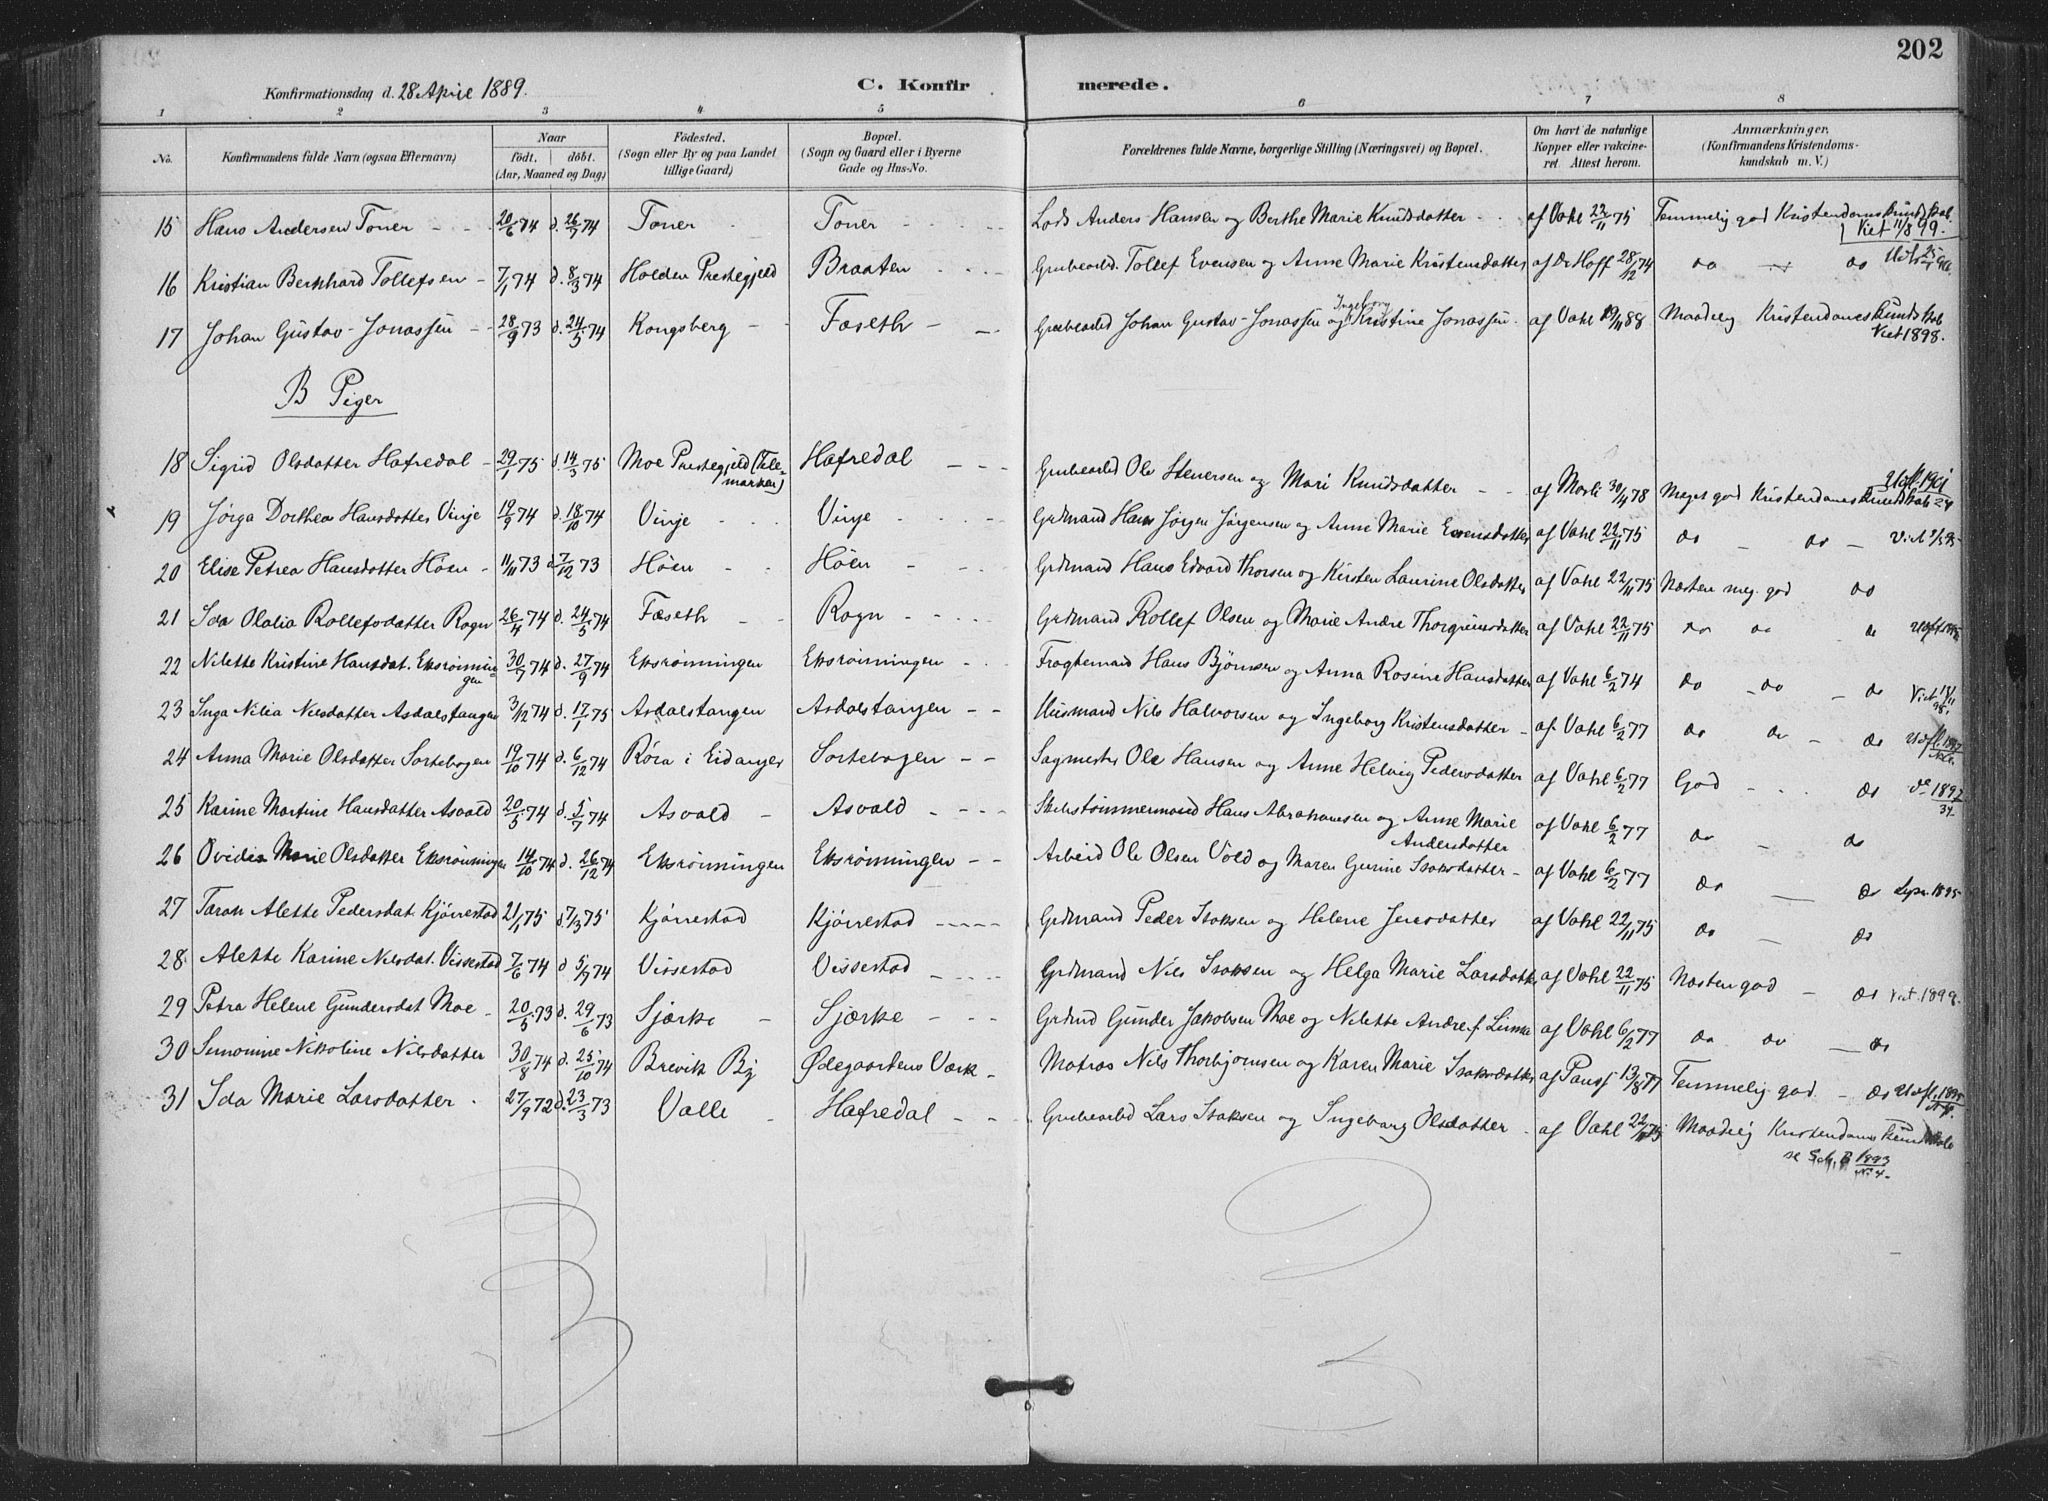 202
Konfirmationsdag d. 28 April 1889. C. Konfirmerede.
1 2 3 4 5 6 7 8
No. Konfirmandens fulde Navn (ogsaa Efternavn) Naar født. døbt. (Aar, Maaned og Dag) Fødested. (Sogn eller By og paa Landet tillige Gaard) Bopæl. (Sogn og Gaard eller i Byerne Gade og Hus-No. Forældrenes fulde Navne, borgerlige Stilling (Næringsvei) og Bopæl. Om havt de naturlige Kopper eller vaccineret. Attest herom. Anmærkninger. (Konfirmandens Kristendomskundskab m. V.)
15 Hans Andersen Toner 20/6 74 d. 26/7 74 Toner Toner Lods Anders Hansen og Berthe Marie Knudsdatter af Vahl 22/11 75 Temmelig god Kristendomskundskab. Viet 11/8 99.
16 Kristian Bernhard Tollefsen 7/1 74 d. 8/3 74 Holden Prestegjeld Braaten Grubearbd. Tollef Evensen og Anne Marie Kristensdatter af Dr Hoff 28/12 74 do do
17 Johan Gustav Jonassen 28/9 73 d. 24/5 74 Kongsberg Faseth Grubearbd Johan Gustav Jonassen og Ingeborg Kristine Jonassen af Vahl 19/11 88 Maadelig Kristendomskundskab Viet 1898.
B Piger
18 Sigrid Olsdatter Hafredal 29/1 75 d. 14/3 75 Moe Prestegjeld (Telemarken) Hafredal Grubearbd Ole Stenersen og Mari Knudsdatter af Morli 30/4 78 Meget god Kristendomskundskab
19 Jørga Dorthea Hansdatter Vinje 19/9 74 d. 18/10 74 Vinje Vinje Grdmand Hans Jørgen Jørgensen og Anne Marie Evensdatter af Vahl 22/11 75 do do
20 Elise Petrea Hansdatter Høen 11/11 73 d. 7/12 73 Høen Høen Grdmand Hans Edvard Thorsen og Kirsten Laurine Olsdatter af Vahl 22/11 75 Næsten meg. god do
21 Ida Olalia Rollefsdatter Rogn 26/4 74 d. 24/5 74 Fæseth Rogn Grdmand Rollef Olsen og Marie Andre Thorgrimsdatter af Vahl 22/11 75 do do do
22 Nilette Kristine Hansdat. Eksrønningen 30/7 74 d. 27/9 74 Eksrønningen Eksrønningen Fragtemand Hans Bjørnsen og Anna Rosine Hansdatter af Vahl 6/2 74 do do do
23 Inga Nilia Nilsdatter Asdalstangen 3/12 74 d. 17/1 75 Asdalstangen Asdalstangen Husmand Nils Halvorsen og Ingeborg Kristensdatter af Vahl 6/2 77 do do do
24 Anna Marie Olsdatter Sortebogen 19/10 74 d. 6/12 74 Røra i Eidanger Sortebogen Sagmester Ole Hansen og Anne Helvig Pedersdatter af Vahl 6/2 77 God do
25 Karine Martine Hansdatter Asvald 20/5 74 d. 5/7 74 Asvald Asvald Skibstømmermand Hans Abrahamsen og Anne Marie Andersdatter af Vahl 6/2 77 do do
26 Ovidia Marie Olsdatter Eksrønningen 14/10 74 d. 26/12 74 Eksrønningen Eksrønningen Arbeid Ole Olsen Vold og Maren Gurine Isaksdatter af Vahl 6/2 77 do do
27 Taran Alette Pedersdat Kjørrestad 21/1 75 d. 7/3 75 Kjørrestad Kjørrestad Grdmand Peder Isaksen og Helene Jensdatter af Vahl 22/11 75 do do
28 Alette Karine Nilsdat. Vissestad 7/6 74 d 5/7 74 Vissestad Vissestad Grdmand Nils Isaksen og Helga Marie Larsdatter af Vahl 22/11 75 Næsten god do Viet. 1899.
29 Petra Helene Gundersdat Moe 20/5 73 d. 29/6 73 Sjærke Sjærke Grdmd Gunder Jakobsen Moe og Nilette Andre f Linna af Vahl 6/2 77 do do do
30 Simonine Nikoline Nilsdatter 30/8 74 d. 25/10 74 Brevik By Ødegaardens Værk Matros Nils Thorbjørnsen og Karen Marie Isaksdatter af Pauss 13/8 77 Temmelig god do
31 Ida Marie Larsdatter 27/9 72 d. 23/3 73 Valle Hafredal Grubearbd Lars Isaksen og Ingeborg Olsdatter af Vahl 22/11 75 Maadelig Kristendomskundskab
se Sch. B 1893 No 4.